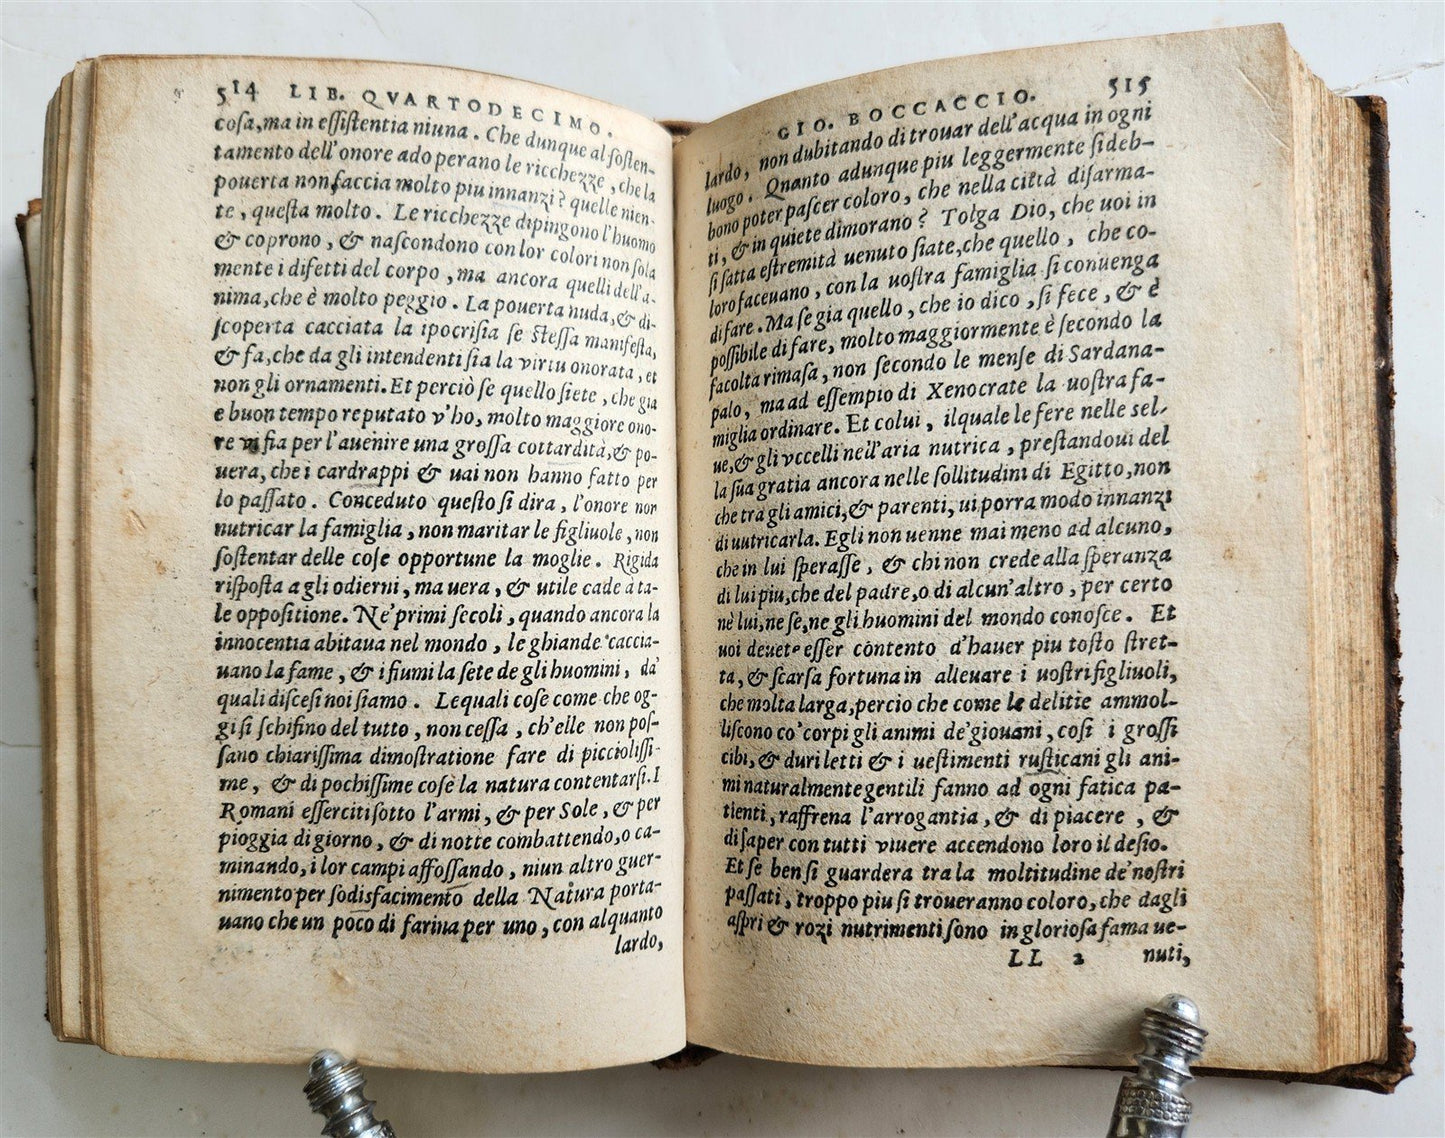 514 LIB. QVARTODECIMO.
cosa,ma in essistentia niuna. Che dunque al sosten-
tamento dell'onore adoperano le ricchezze, che la
pouerta non faccia molto piu innanzi? quelle nien-
te, questa molto. Le ricchezze dipingono l'huomo
& coprono, & nascondono con lor colori non sola
mente i difetti del corpo, ma ancora quelli dell'a-
nima, che è molto peggio. La pouerta nuda,& di-
scoperta cacciata la ipocrisia se stessa manifesta,
& fa,che da gli intendenti sia la virtu onorata, et
non gli ornamenti. Et perciò se quello siete, che gia
e buon tempo reputato v'ho, molto maggiore ono-
re vi fia per l'auenire una grossa cottardità,& po-
uera, che i cardrappi & uai non hanno fatto per
lo passato. Conceduto questo si dira, l'onore non
nutricar la famiglia, non maritar le figliuole, non
sostentar delle cose opportune la moglie. Rigida
risposta a gli odierni, ma uera, & utile cade à ta-
le oppositione. Ne' primi secoli, quando ancora la
innocentia abitaua nel mondo, le ghiande caccia-
uano la fame, & i fiumi la sete de gli huomini, da'
quali discesi noi siamo. Lequali cose come che og-
gi si schifino del tutto, non cessa, ch'elle non pos-
sano chiarissima dimostratione fare di picciolissi-
me, & di pochissime cose la natura contentarsi. I
Romani esserciti sotto l'armi, & per Sole, & per
pioggia di giorno, & di notte combattendo, o ca-
minando, i lor campi affossando, niun altro guer-
nimento per sodisfacimento della Natura porta-
uano che un poco di farina per uno, con alquanto
lardo,
GIO. BOCCACCIO. 515
lardo, non dubitando di trouar dell'acqua in ogni
luogo. Quanto adunque piu leggermente si deb-
bono poter pascer coloro, che nella città disarma-
ti, & in quiete dimorano? Tolga Dio, che uoi in
si fatta estremità uenuto siate,che quello, che co-
loro faceuano, con la uostra famiglia si conuenga
di fare. Ma se gia quello, che io dico, si fece, & è
possibile di fare, molto maggiormente è secondo la
facolta rimasa, non secondo le mense di Sardana-
palo, ma ad essempio di Xenocrate la uostra fa-
miglia ordinare. Et colui, ilquale le fere nelle sel-
ue,& gli vccelli nell'aria nutrica, prestandoui del
la sua gratia ancora nelle sollitudini di Egitto, non
che tra gli amici,& parenti, ui porra modo innanzi
di uutricarla. Egli non uenne mai meno ad alcuno,
che in lui sperasse, & chi non crede alla speranza
di lui piu,che del padre,o di alcun'altro, per certo
nè lui,ne se,ne gli huomini del mondo conosce. Et
uoi deuete esser contento d'hauer piu tosto stret-
ta, & scarsa fortuna in alleuare i uostri figliuoli,
che molta larga, percio che come le delitie ammol-
liscono co' corpi gli animi de' giouani, cosi i grossi
cibi, & duri letti & i uestimenti rusticani gli ani-
mi naturalmente gentili fanno ad ogni fatica pa-
tienti, raffrena l'arrogantia, & di piacere, &
di saper con tutti viuere accendono loro il desio.
Et se ben si guardera tra la moltitudine de' nostri
passati, troppo piu si troueranno coloro, che dagli
aspri & rozi nutrimenti sono in gloriosa fama ue-
LL 2 nuti,